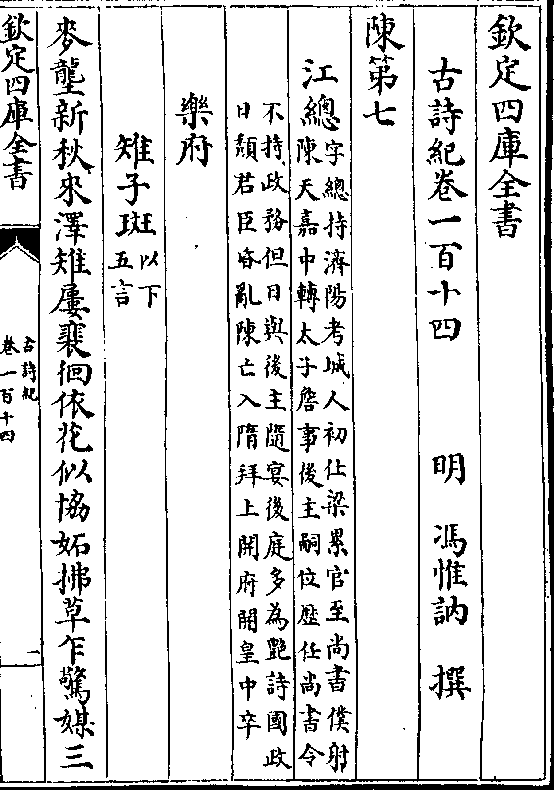 欽定四庫全書
古詩紀卷一百十四　明　馮惟訥　撰
陳第七
江總字總持濟陽考城人初仕梁累官至尚書僕射
陳天嘉中轉太子詹事後主嗣位歷任尚書令
不持政務但日與後主隨宴後庭多為艷詩國政
日頹君臣昏亂陳亡入隋拜上開府開皇中卒
樂府
雉子斑以下
五言
麥壟新秋來澤雉屢裴徊依花似協妬拂草乍驚媒三
欽定四庫全書
古詩紀
卷一百十四
一